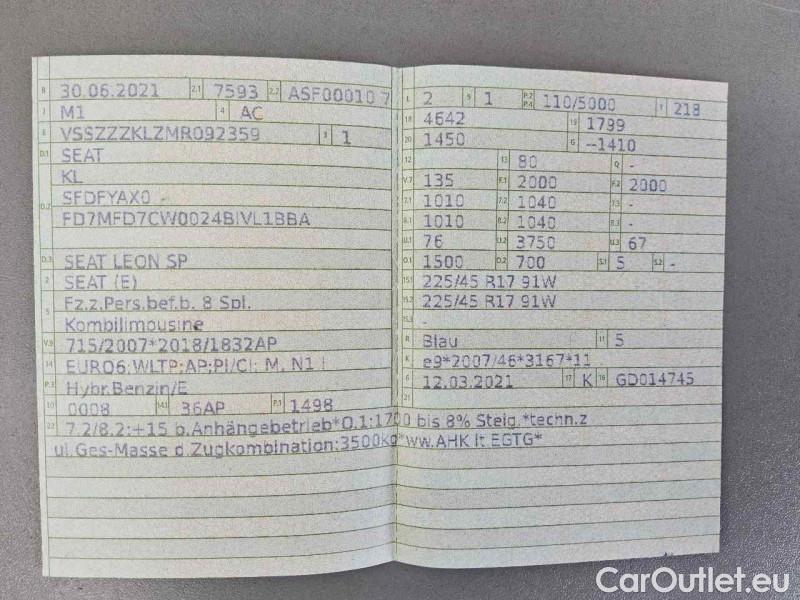 B 30.06.2021 2.1 7593 2.2 ASF00010 7
J M1 4 AC
E VSSZZZKLZMR092359 3 1
D.1 SEAT
KL
D.2 SFDFYAX0 -
FD7MFD7CW0024BIVL1BBA
D.3 SEAT LEON SP
2 SEAT (E)
5 Fz.z.Pers.bef.b. 8 Spl.
Kombilimousine
V.9 715/2007*2018/1832AP
14 EURO6;WLTP;AP;PI/CI; M, N1 I
P.3 Hybr.Benzin/E
10 0008 14.1 36AP P.1 1498
L 2 9 1 P.2 P.4 110/5000 T 218
18 4642 19 1799
20 1450 G --1410
12 13 80 Q -
V.7 135 F.1 2000 F.2 2000
7.1 1010 7.2 1040 7.3 -
8.1 1010 8.2 1040 8.3 -
U.1 76 U.2 3750 U.3 67
O.1 1500 O.2 700 S.1 5 S.2 -
15.1 225/45 R17 91W
15.2 225/45 R17 91W
15.3 -
R Blau 11 5
K e9*2007/46*3167*11
6 12.03.2021 17 K 16 GD014745
21
22 7.2/8.2:+15 b.Anhängebetrieb*O.1:1700 bis 8% Steig.*techn.z
ul.Ges-Masse d.Zugkombination:3500kg*ww.AHK lt.EGTG*
CarOutlet.eu